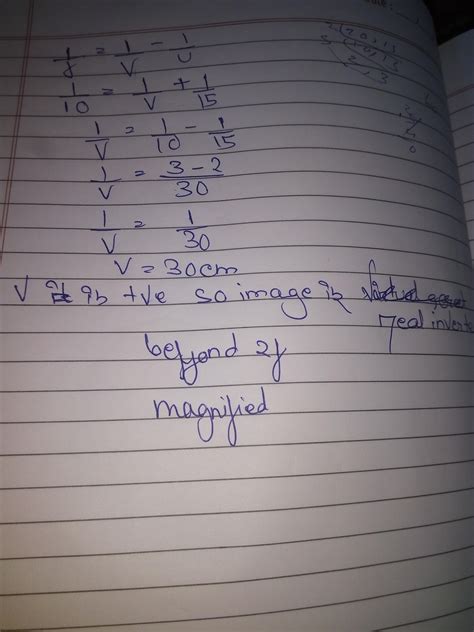 1/f = 1/V - 1/U
1/10 = 1/V + 1/15
1/V = 1/10 - 1/15
1/V = 3-2/30
1/V = 1/30
V = 30cm
V is +ve so image is
real invert
beyond 2f
magnified